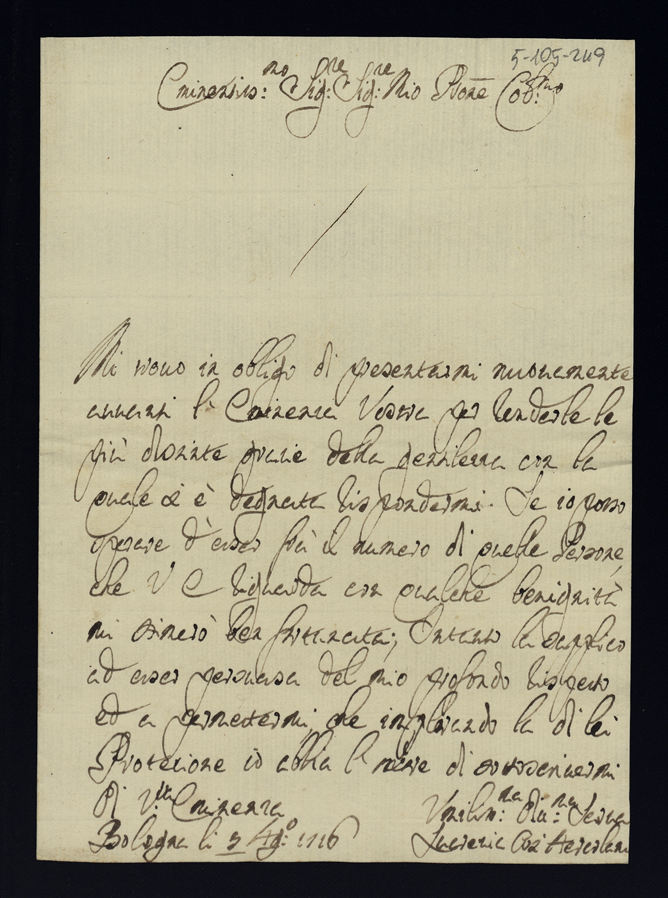 5-105-249
Eminentis:mo Sig:re Sig:re Mio Pñe Col:mo
Mi trovo in obligo di presentarmi nuovamente
avanti l'Eminenza Vostra per renderle le
più distinte grazie della gentilezza con la
quale si è degnata rispondermi. Se io posso
sperare d'esser frà il numero di quelle Persone,
che V E riguarda con qualche benignità
mi stimerò ben fortunata; Intanto la supplico
ad esser persuasa del mio profondo rispetto
ed a permettermi, che implorando la di lei
Protezione io abbia l'onore di sottoscrivermi
di V:ra Eminenza
Umilis:ma Div:ma Serva
Bologna li 5 Ag:o 1716
Lucrezia Hercolani